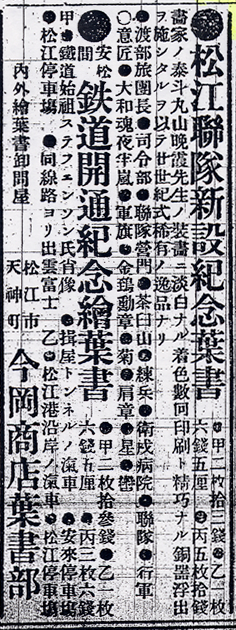 ●松江聯隊新設紀念葉書
●甲二枚拾二錢●乙一枚
六錢五厘●丙五枚拾錢
畵家ノ泰斗丸山晩霞先生ノ裝畵ニ淡白ナル着色數囘印刷ト精巧ナル銅器浮出
ヲ施シタルヲ以テ廿世紀式稀有ノ逸品ナリ
●渡部旅團長●司令部●聯隊營門●茶臼山●練兵●衛戍病院●聯隊●行軍
○意匠●大和魂夜半嵐●軍旗●金鵄勳章●菊●肩章●星●轡
●安松間鉄道開通紀念繪葉書
●甲二枚拾參錢●乙一枚
六錢五厘●丙三枚六錢
甲●鐵道始祖ステフェンソン氏肖像●揖屋トンネルノ滊車●安來停車塲
●松江停車塲●同線路ヨリ出雲富士 乙●松江港沿岸ノ滊車●松江停車塲
內外繪葉書卸問屋
松江市
天神町
今岡商店葉書部